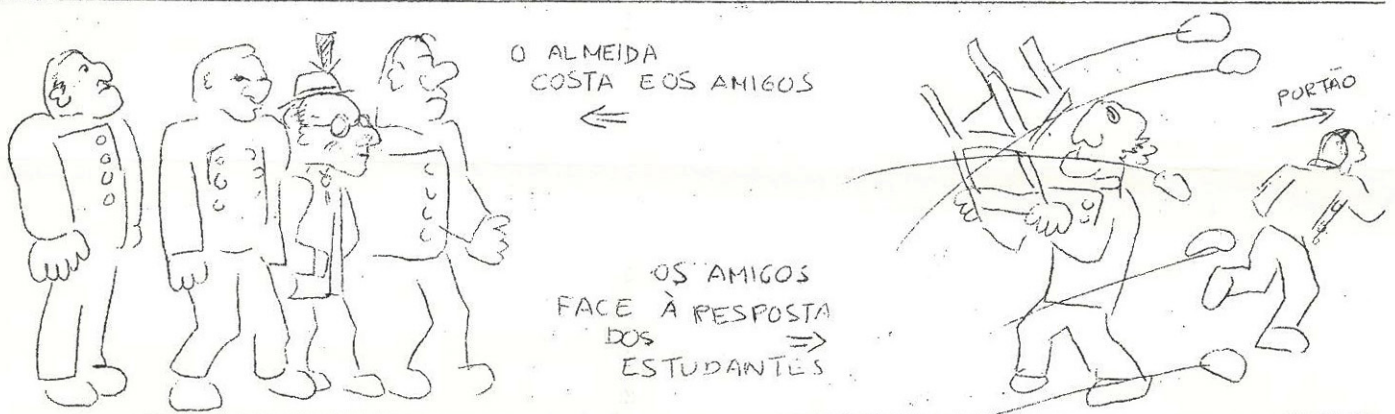 O ALMEIDA
COSTA E OS AMIGOS
PORTÃO
OS AMIGOS
FACE À RESPOSTA
DOS
ESTUDANTES